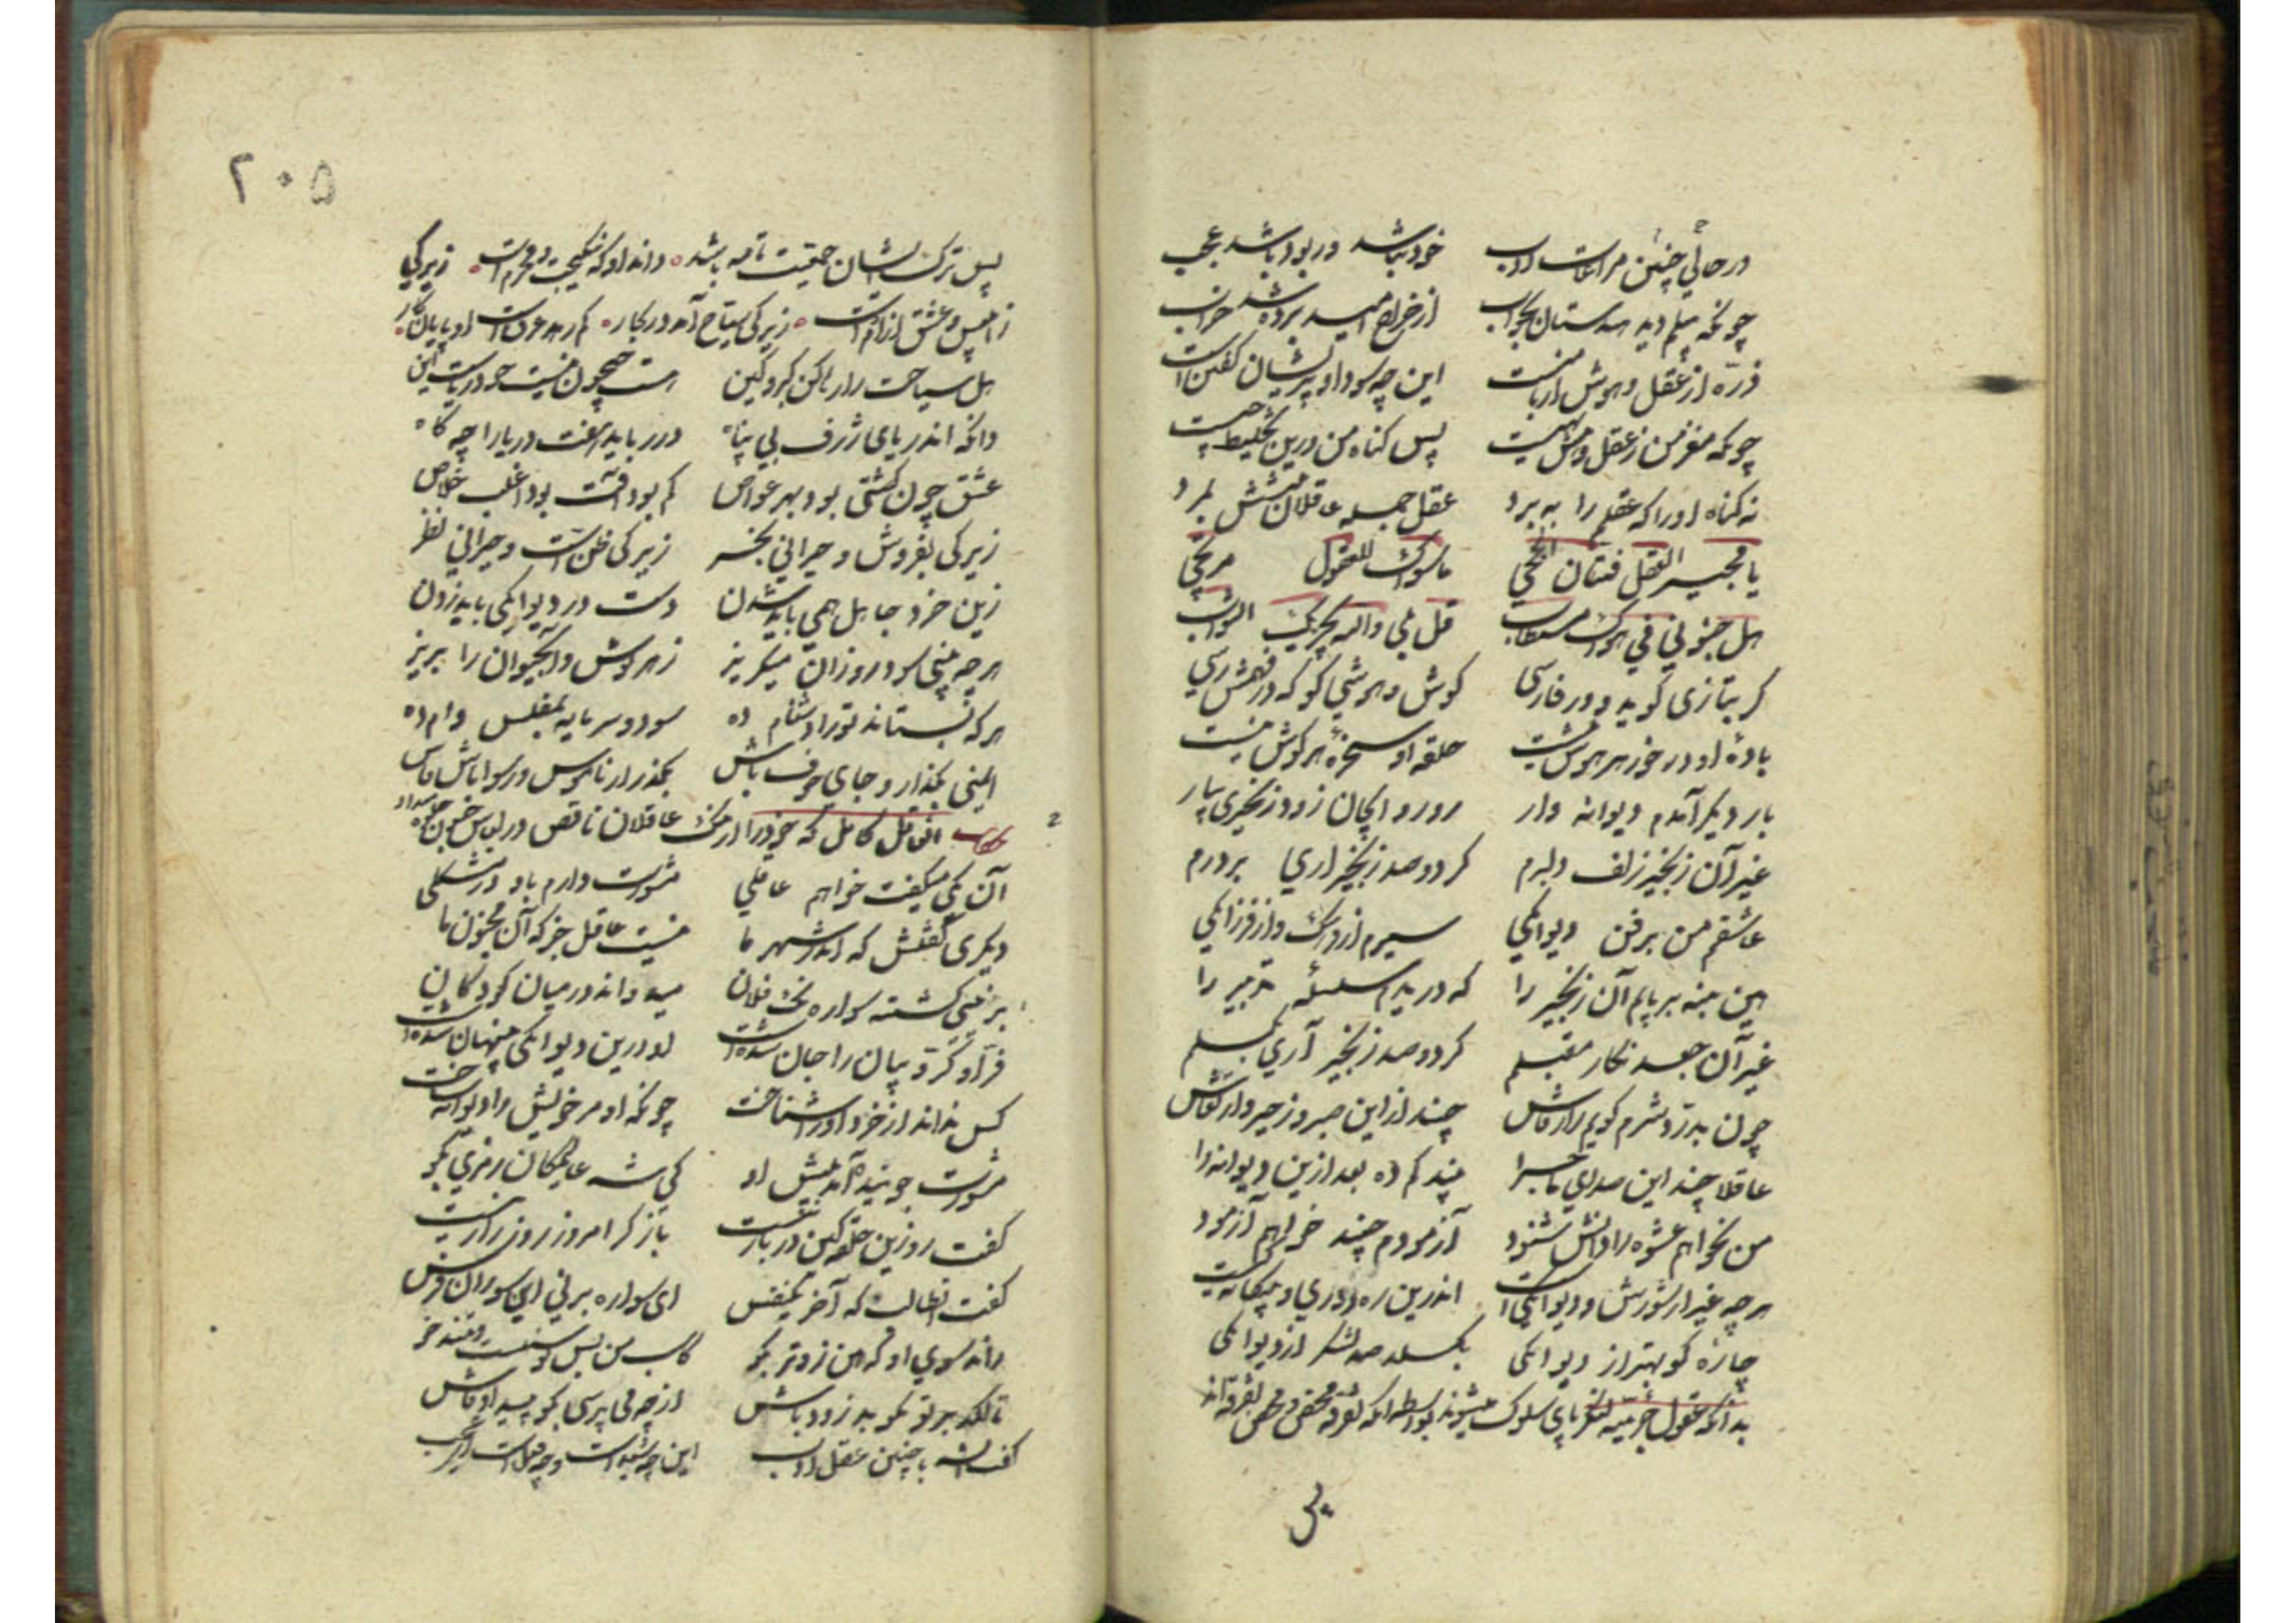 در حالی چنین مراعات ادب خود نباشد ور بود باشد عجب
چونکه پیلم دید هندستان بخواب از خراج امید بر ده شد خراب
ذره از عقل و هوش ار با منست این چه سودا و پریشان گفتن است
چونکه مغز من ز عقل و هش تهیست پس گناه من درین تخلیط چیست
نه گناه او را که عقلم را ببرد عقل جمله عاقلان پیشش بمرد
یا مجیر العقل فتان الحجی ما سواک للعقول مرتجی
هل جنونی فی هواک مستطاب قل بلی والله یجزیک الثواب
گر بتازی گوید و ور فارسی گوش و هوشی کو که در فهمش رسی
باده او در خور هر هوش نیست حلقه او سخره هر گوش نیست
بار دیگر آمدم دیوانه وار رو رو ای جان زود زنجیری بیار
غیر آن زنجیر زلف دلبرم گر دو صد زنجیر آری بر درم
عاشقم من بر فن دیوانگی سیرم از فرهنگ و از فرزانگی
هین منه بر پایم آن زنجیر را که دریدم سلسله تدبیر را
غیر آن جعد نگار مقبلم گر دو صد زنجیر آری بگسلم
چون بدرد شرم گویم راز فاش چند ازین صبر و زحیر و ارتعاش
عاقلا چند این صدای ماجرا پند کم ده بعد ازین دیوانه را
من نخواهم عشوه دانش شنود آزمودم چند خواهم آزمود
هر چه غیر از شورش و دیوانگی است اندرین ره دوری و بیگانگیست
چاره کو بهتر از دیوانگی بگسلد صد لنگر از دیوانگی
بدانکه عقول جزئیه لنگر پای سلوک میشوند بواسطه آنکه
پس ترک ایشان حقیقت تامه باشد داند او که نیکبخت و محرم است زیرکی
ز ابلیس و عشق از آدم است زیرکی سباحی آمد در بحار کم رهد غرق است او پایان کار
هل سباحت را رها کن کبر و کین نیست جیحون نیست جو دریاست این
وانگه اندریای ژرف بی پناه در رباید هفت دریا را چو کاه
عشق چون کشتی بود بهر خواص کم بود آفت بود اغلب خلاص
زیرکی بفروش و حیرانی بخر زیرکی ظن است و حیرانی نظر
زین خرد جاهل همی باید شدن دست در دیوانگی باید زدن
هر چه بینی سود رو زان میگریز زهر نوش و آبحیوان را بریز
هر که بستاند تو را دشنام ده سود و سرمایه بمفلس وام ده
ایمنی بگذار و جای خوف باش بگذر از ناموس و رسوا باش فاش
حکایت آن عاقل کامل که خود را از ننگ عاقلان ناقص در لباس جنون جلوه میداد
آن یکی میگفت خواهم عاقلی مشورت دارم باو در مشکلی
دیگری گفتش که اندر شهر ما نیست عاقل جز که آن مجنون ما
بر نئی گشته سواره نک فلان میدواند در میان کودکان
فر او کروبیان را جان شده است او درین دیوانگی پنهان شده است
کس نداند از خرد او را شناخت چونکه او مر خویش را دیوانه ساخت
مشورت جوینده آمد پیش او کی شه عالمیان رمزی بگو
گفت رو زین حلقه کین در باز نیست باز گرد امروز روز راز نیست
گفت آن طالب که آخر یکنفس ای سواره بر نی این سو ران فرس
راند سوی او که هین زوتر بگو کاسب من بس توسنست و تند خو
تا لگد بر تو نکوبد زود باش از چه می پرسی بگو پیدا و فاش
گفت ای شه با چنین عقل و ادب این چه شید است و چه فعلست ای عجب
۲۰۵